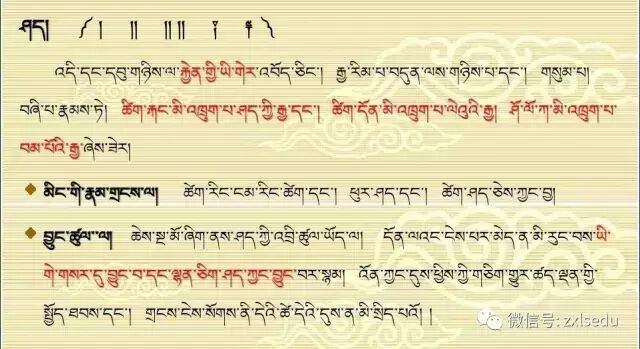 ཤད། ༼ ། །། །། །། ༈ ༑ ༽
འདི་དང་དབུ་གཉིས་ལ་རྐྱེན་གྱི་ཡི་གེར་འབོད་ཅིང་། རྒྱ་རིམ་པ་བདུན་ལས་གཉིས་པ་དང་། གསུམ་པ།
བཞི་པ་རྣམས་ཏེ། ཚིག་རྐང་མི་འཁྲུག་པ་ཤད་ཀྱི་རྒྱ་དང་། ཚིག་དོན་མི་འཁྲུག་པ་ལེའུའི་རྒྱ། ཤོ་ལོ་ཀ་མི་འཁྲུག་པ་
བམ་པོའི་རྒྱ་ཞེས་ཟེར།
མིང་གི་རྣམ་གྲངས་ལ། ཚེག་རིང་ངམ་རིང་ཚེག་དང་། ཕུར་ཤད་དང་། ཚེག་ཤད་ཅེས་ཀྱང་བྱ།
བྱུང་ཚུལ་ལ། ཆེས་སྔ་མོ་ཞིག་ནས་ཤད་ཀྱི་འབྲི་ཚུལ་ཡོད་ལ། དོན་ལའང་ངེས་པར་མེད་ན་མི་རུང་བས་ཡི་
གེ་གསར་དུ་བྱུང་བ་དང་ལྷན་ཅིག་ཤད་ཀྱང་བྱུང་བར་སྙམ། འོན་ཀྱང་དུས་ཕྱིས་ཀྱི་གཅིག་གྱུར་ཚད་ལྡན་གྱི་
སྤྱོད་ཐབས་དང་། གྲངས་ངེས་སོགས་ནི་དེའི་ཚེ་དེའི་དུས་ན་མི་སྲིད་པའོ། །
微信号: zxlsedu